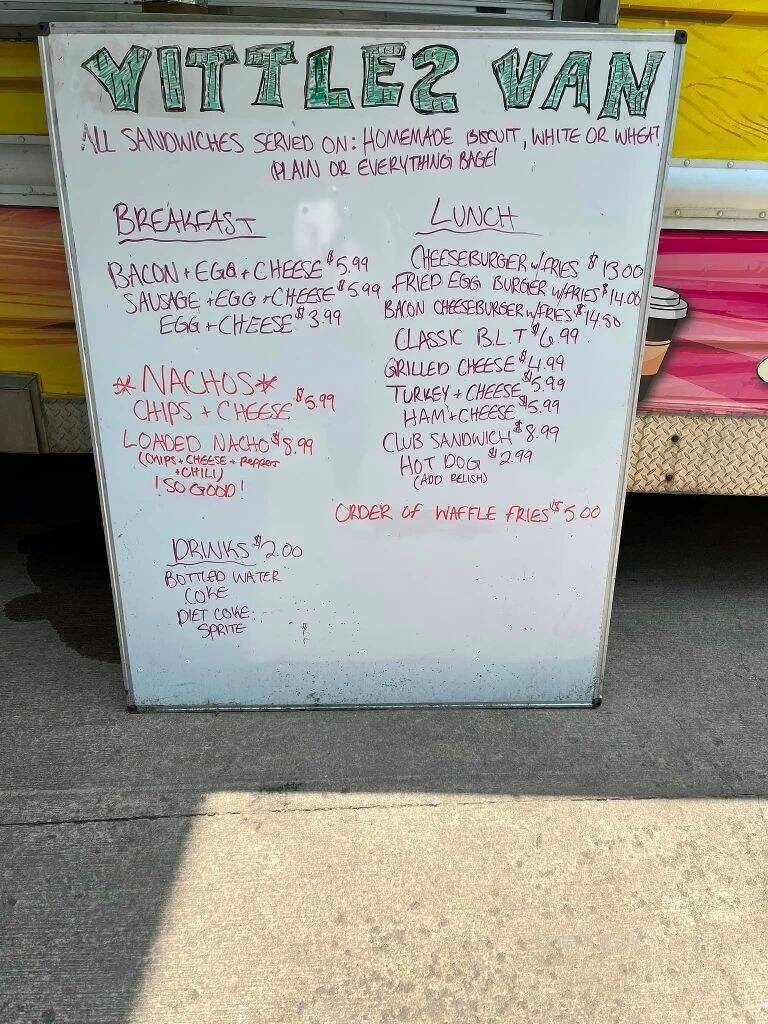 VITTLES VAN
ALL SANDWICHES SERVED ON: HOMEMADE BISCUIT, WHITE OR WHEAT
PLAIN OR EVERYTHING BAGEL
BREAKFAST
BACON + EGG + CHEESE $5.99
SAUSAGE + EGG + CHEESE $5.99
EGG + CHEESE $3.99
*NACHOS*
CHIPS + CHEESE $5.99
LOADED NACHO $8.99
(CHIPS + CHEESE + PEPPERS
+ CHILI)
! SO GOOD!
DRINKS $2.00
BOTTLED WATER
COKE
DIET COKE
SPRITE
LUNCH
CHEESEBURGER w/FRIES $13.00
FRIED EGG BURGER w/FRIES $14.00
BACON CHEESEBURGER w/FRIES $14.50
CLASSIC B.L.T $6.99
GRILLED CHEESE $4.99
TURKEY + CHEESE $5.99
HAM + CHEESE $5.99
CLUB SANDWICH $8.99
HOT DOG $2.99
(ADD RELISH)
ORDER OF WAFFLE FRIES $5.00